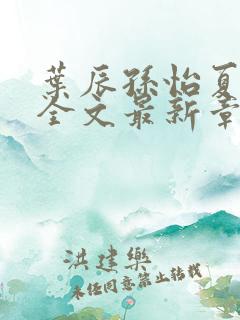 葉辰孫怡夏
全文最新章
洪建樂
未經同意禁止轉載